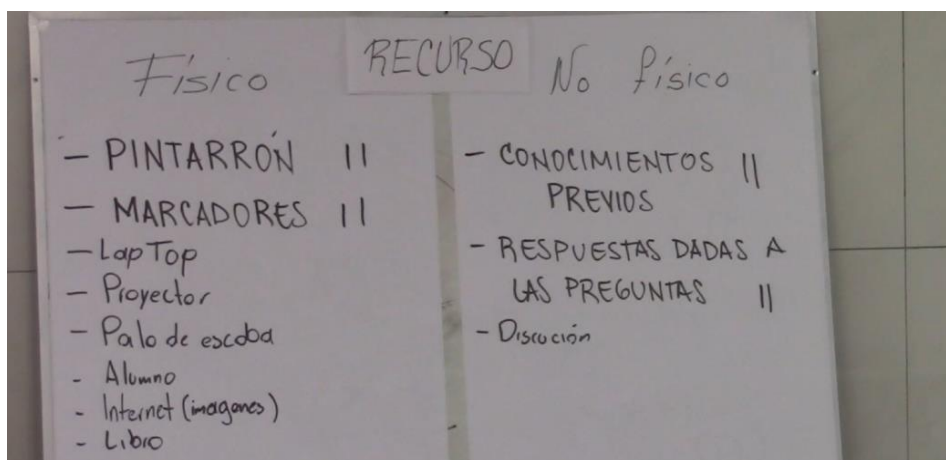 RECURSO
Físico
- PINTARRÓN II
- MARCADORES II
- LapTop
- Proyector
- Palo de escoba
- Alumno
- Internet (imagenes)
- Libro
No físico
- CONOCIMIENTOS II
PREVIOS
- RESPUESTAS DADAS A
LAS PREGUNTAS II
- Discución